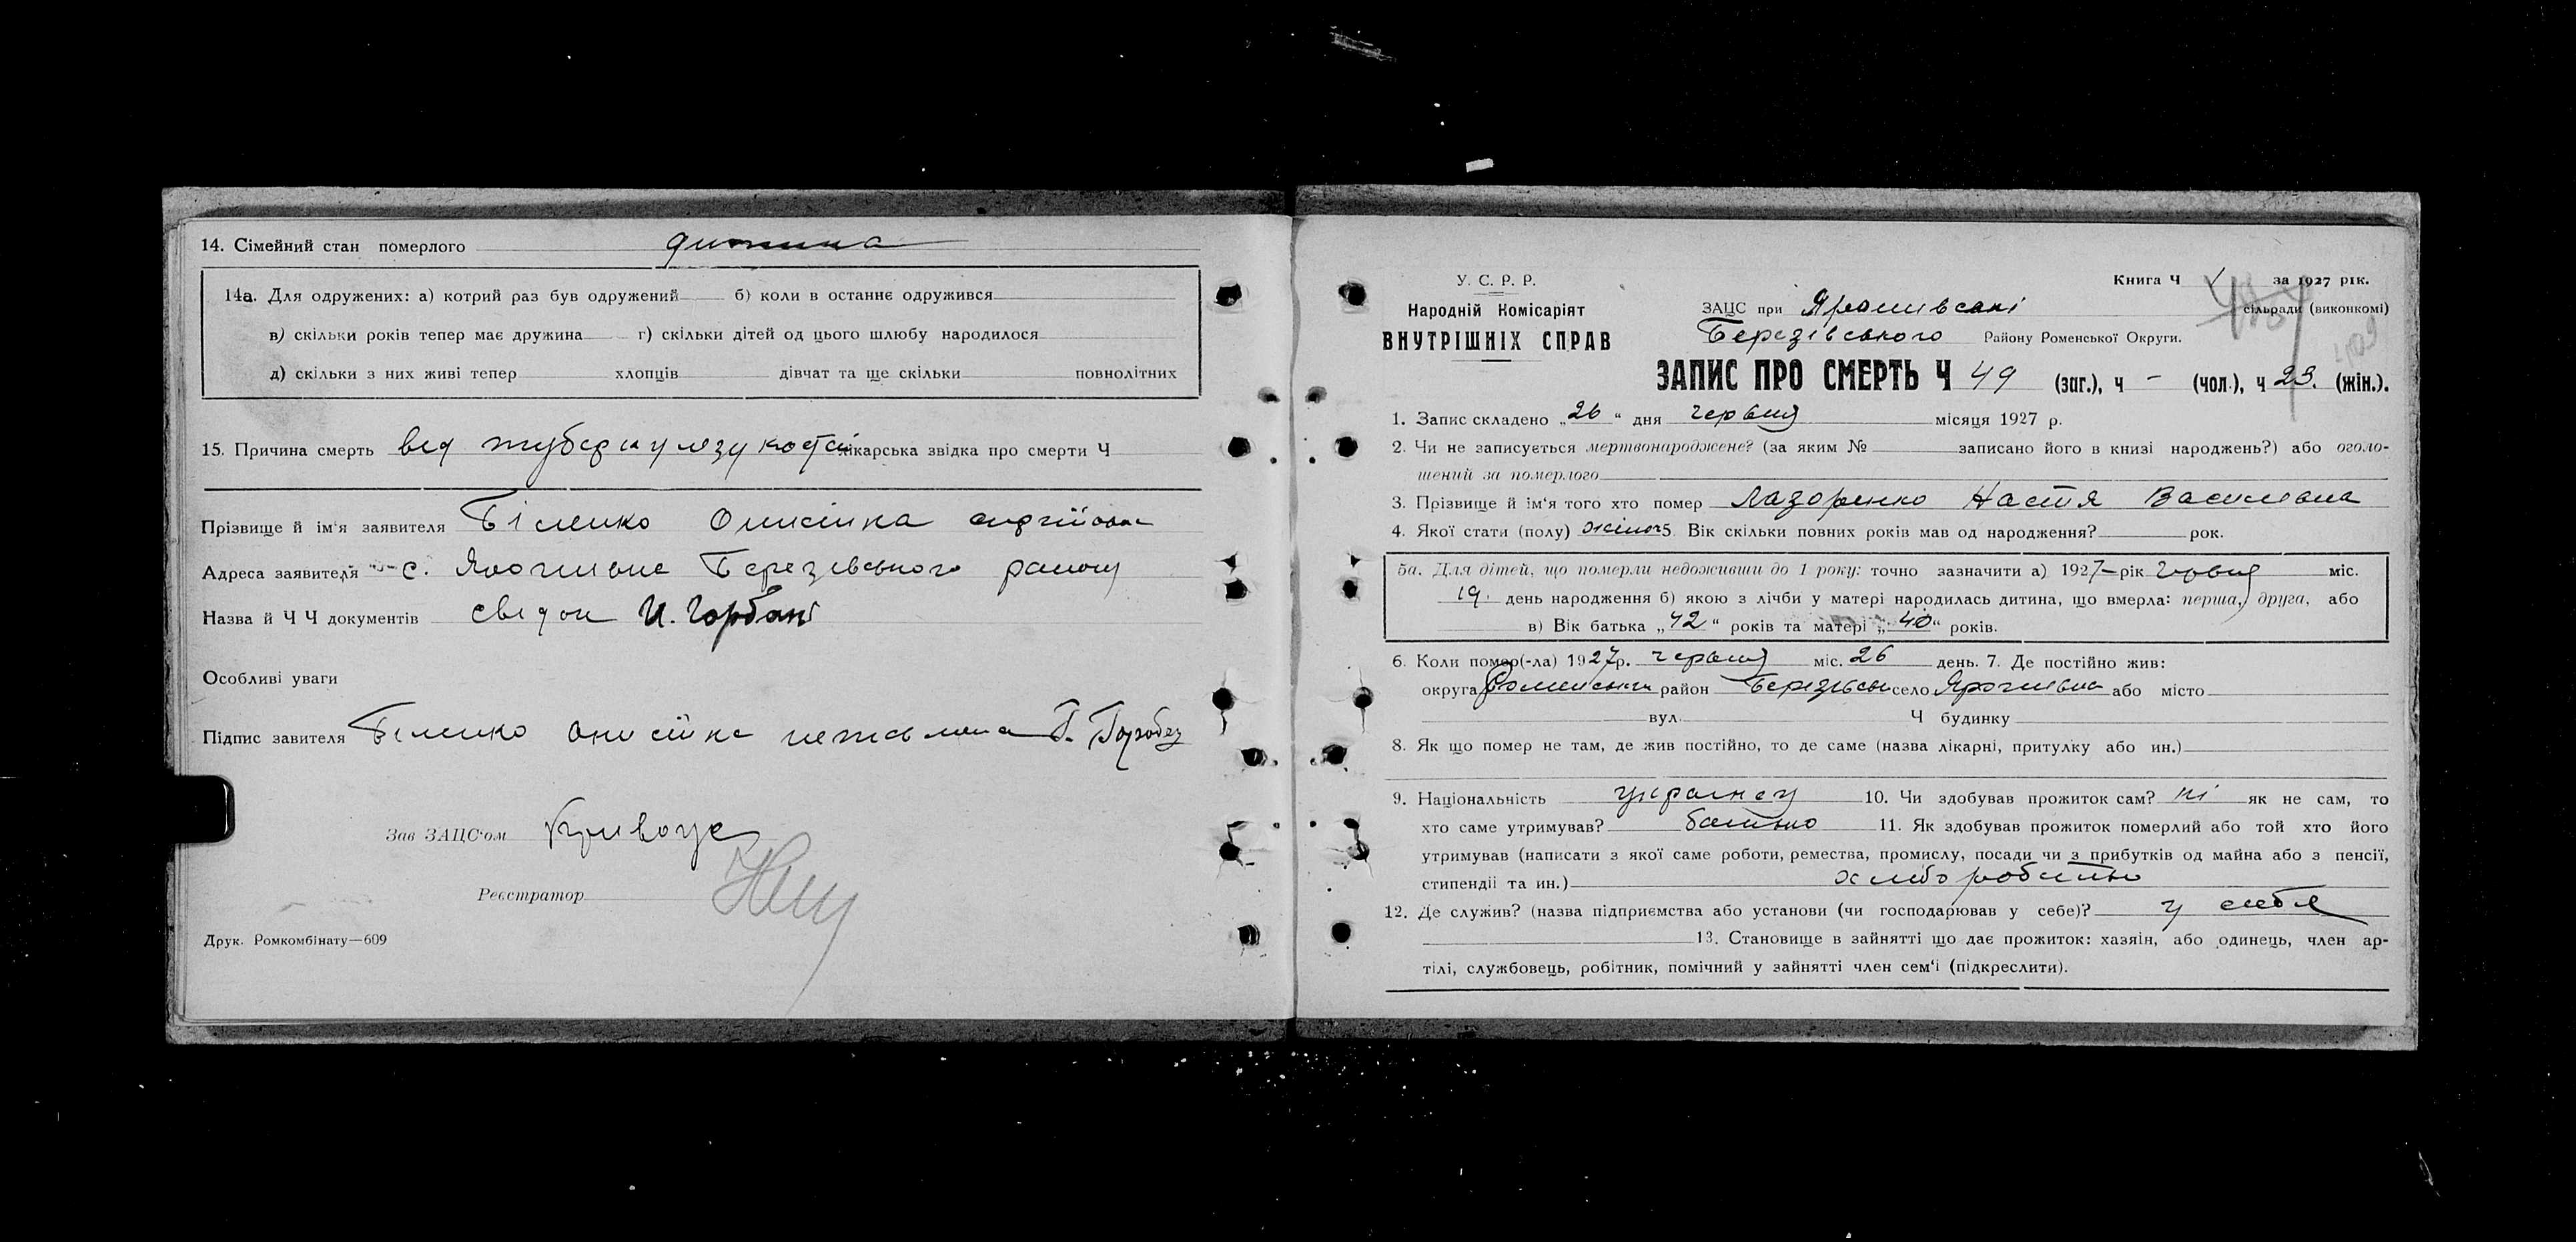 14. Сімейний стан померлого дитина
14а. Для одружених: а) котрий раз був одружений б) коли в останнє одружився
в) скільки років тепер має дружина г) скільки дітей од цього шлюбу народилося
д) скільки з них живі тепер хлопців дівчат та ще скільки повнолітних
15. Причина смерть від туберкулязу костей лікарська звідка про смерти Ч
Прізвище й ім'я заявителя Біленко Онисійка
Адреса заявителя с. Ярошивка Березівського району
Назва й Ч Ч документів свідок И. Горбань
Особливі уваги
Підпис завителя Біленко Онисійка
Зав ЗАЦС'ом
Реєстратор
Друк. Ромкомбінату—609
У. С. Р. Р.
Народній Комісаріят
ВНУТРІШНІХ СПРАВ
Книга Ч за 1927 рік.
ЗАЦС при Ярошивські сільради (виконкомі)
Березівського Району Роменської Округи.
ЗАПИС ПРО СМЕРТЬ Ч 49 (заг.), ч - (чол.), ч 23. (жін.).
1. Запис складено „26" дня червня місяця 1927 р.
2. Чи не записується мертвонароджене? (за яким № записано його в книзі народжень?) або оголо-
шений за померлого
3. Прізвище й ім'я того хто помер Лазоренко Настя Василівна
4. Якої стати (полу) жіноч 5. Вік скільки повних років мав од народження? рок.
5а. Для дітей, що померли недоживши до 1 року: точно зазначити а) 1927 рік червня міс.
19. день народження б) якою з лічби у матері народилась дитина, що вмерла: перша, друга, або
в) Вік батька „42" років та матері „40" років.
6. Коли помер(-ла) 1927р. червня міс. 26 день. 7. Де постійно жив:
округа Роменська район Березівськ село Ярошивка або місто
вул. Ч будинку
8. Як що помер не там, де жив постійно, то де саме (назва лікарні, притулку або ин.)
9. Національність украінец 10. Чи здобував прожиток сам? ні як не сам, то
хто саме утримував? батько 11. Як здобував прожиток померлий або той хто його
утримував (написати з якої саме роботи, ремества, промислу, посади чи з прибутків од майна або з пенсії,
стипендії та ин.) хлібороб
12. Де служив? (назва підприємства або установи (чи господарював у себе)? у себя
13. Становище в зайнятті що дає прожиток: хазяін, або одинець, член ар-
тілі, службовець, робітник, помічний у зайнятті член сем'і (підкреслити).